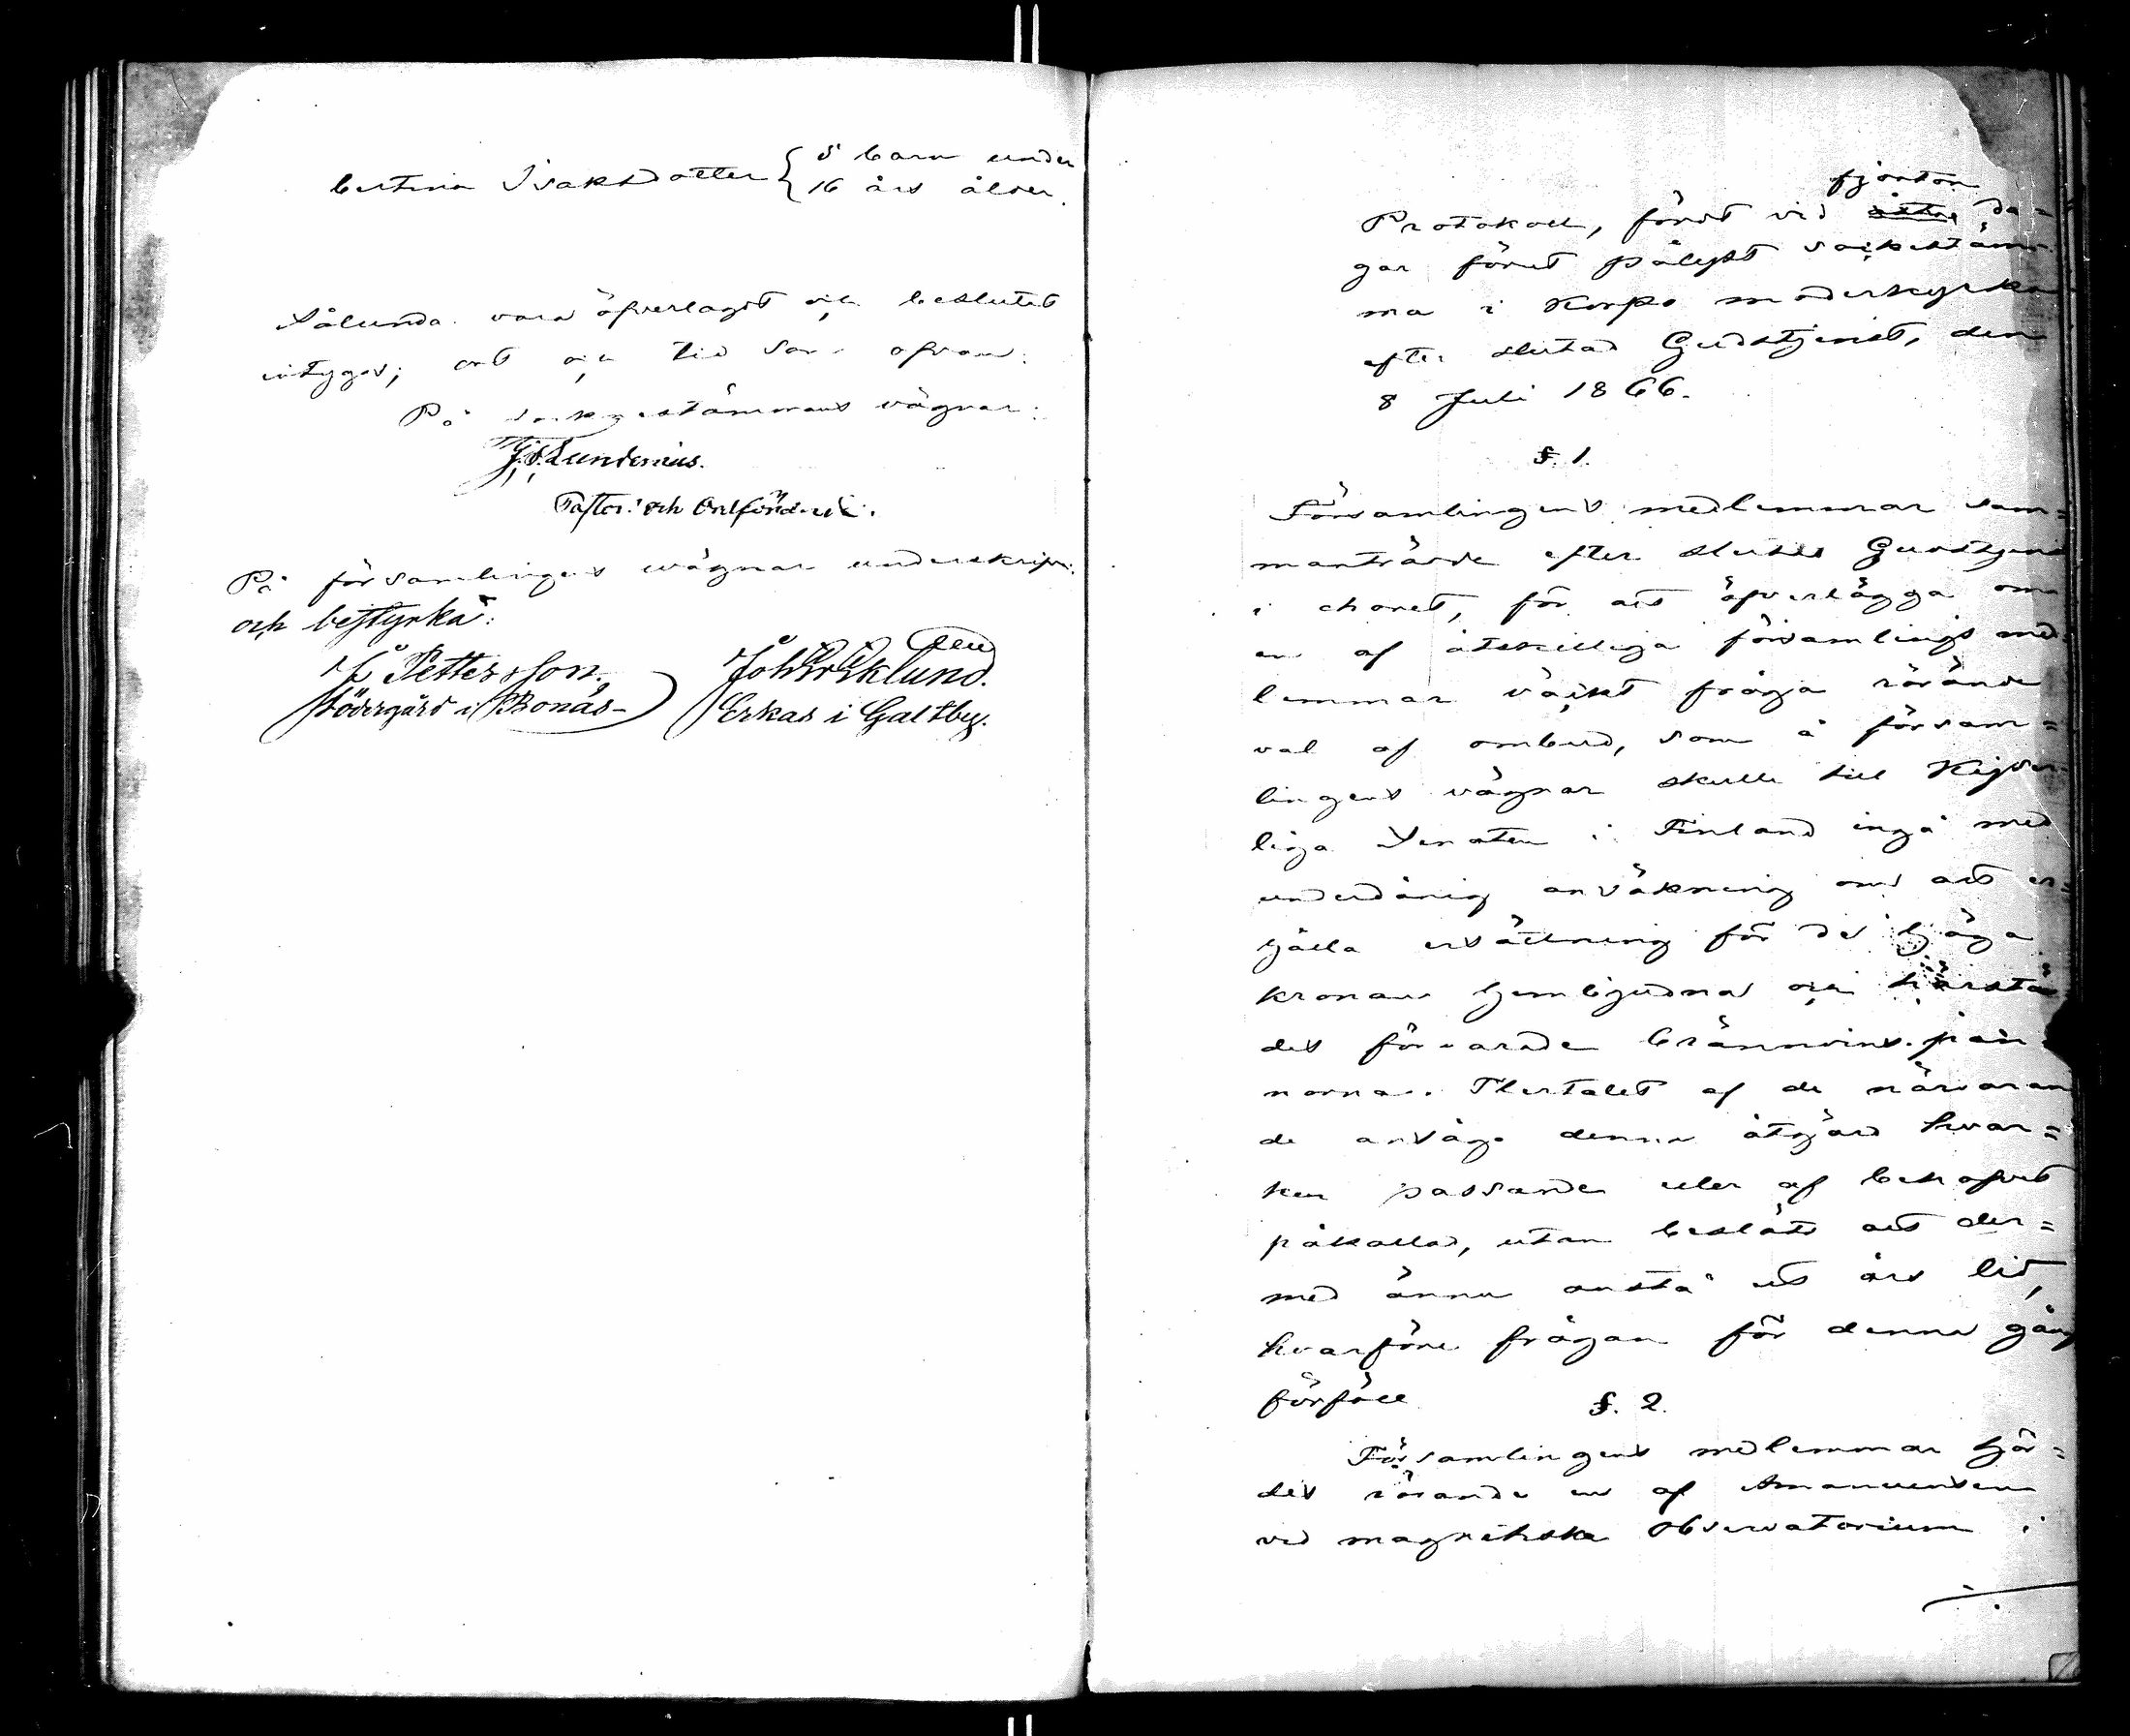 bertina Isaksdotter { 5 barn under
16 års ålder.
Sålunda vara öfverlagdt och beslutet
intygas; ort och tid som ofvan.
På sockenstämmans vägnar:
Lundenius.
Pastor och Ordförande.
På församlingens wägnar underskrifva
och bestyrka:
Pettersson, Joh: Eklund.
Södergård i Bonäs Erkas i Galtby.
fjorton
Protokoll, fördt vid åtta da=
gar förut pålyst sockestäm-
ma i Korpo moderkyrka
efter slutad Gudstjenst, den
8 Juli 1866.
§. 1.
Församlingens medlemmar sam=
manträdde efter slutad Gudstjenst
i choret, för att öfverlägga om
en af åtskilliga församlings med
lemmar väckt fråga rörande
val af ombud, som å försam=
lingens vägnar skulle till Kejser-
liga Senaten i Finland ingå med
underdånig ansökning om att er=
hålla ersättning för de Höga
kronan hembjudna och härstä
des förvarade brännvins pan
norna. Flertalet af de närvaran
de ansågo denna åtgärd hvar=
ken passande eller af behofvet
påkallad, utan beslöts att der=
med ännu anstå ett års tid,
hvarföre frågan för denna gång
förföll
§. 2.
Församlingens medlemmar hör=
des rörande en af Amanuensen
vid magnetiska Observatorium i